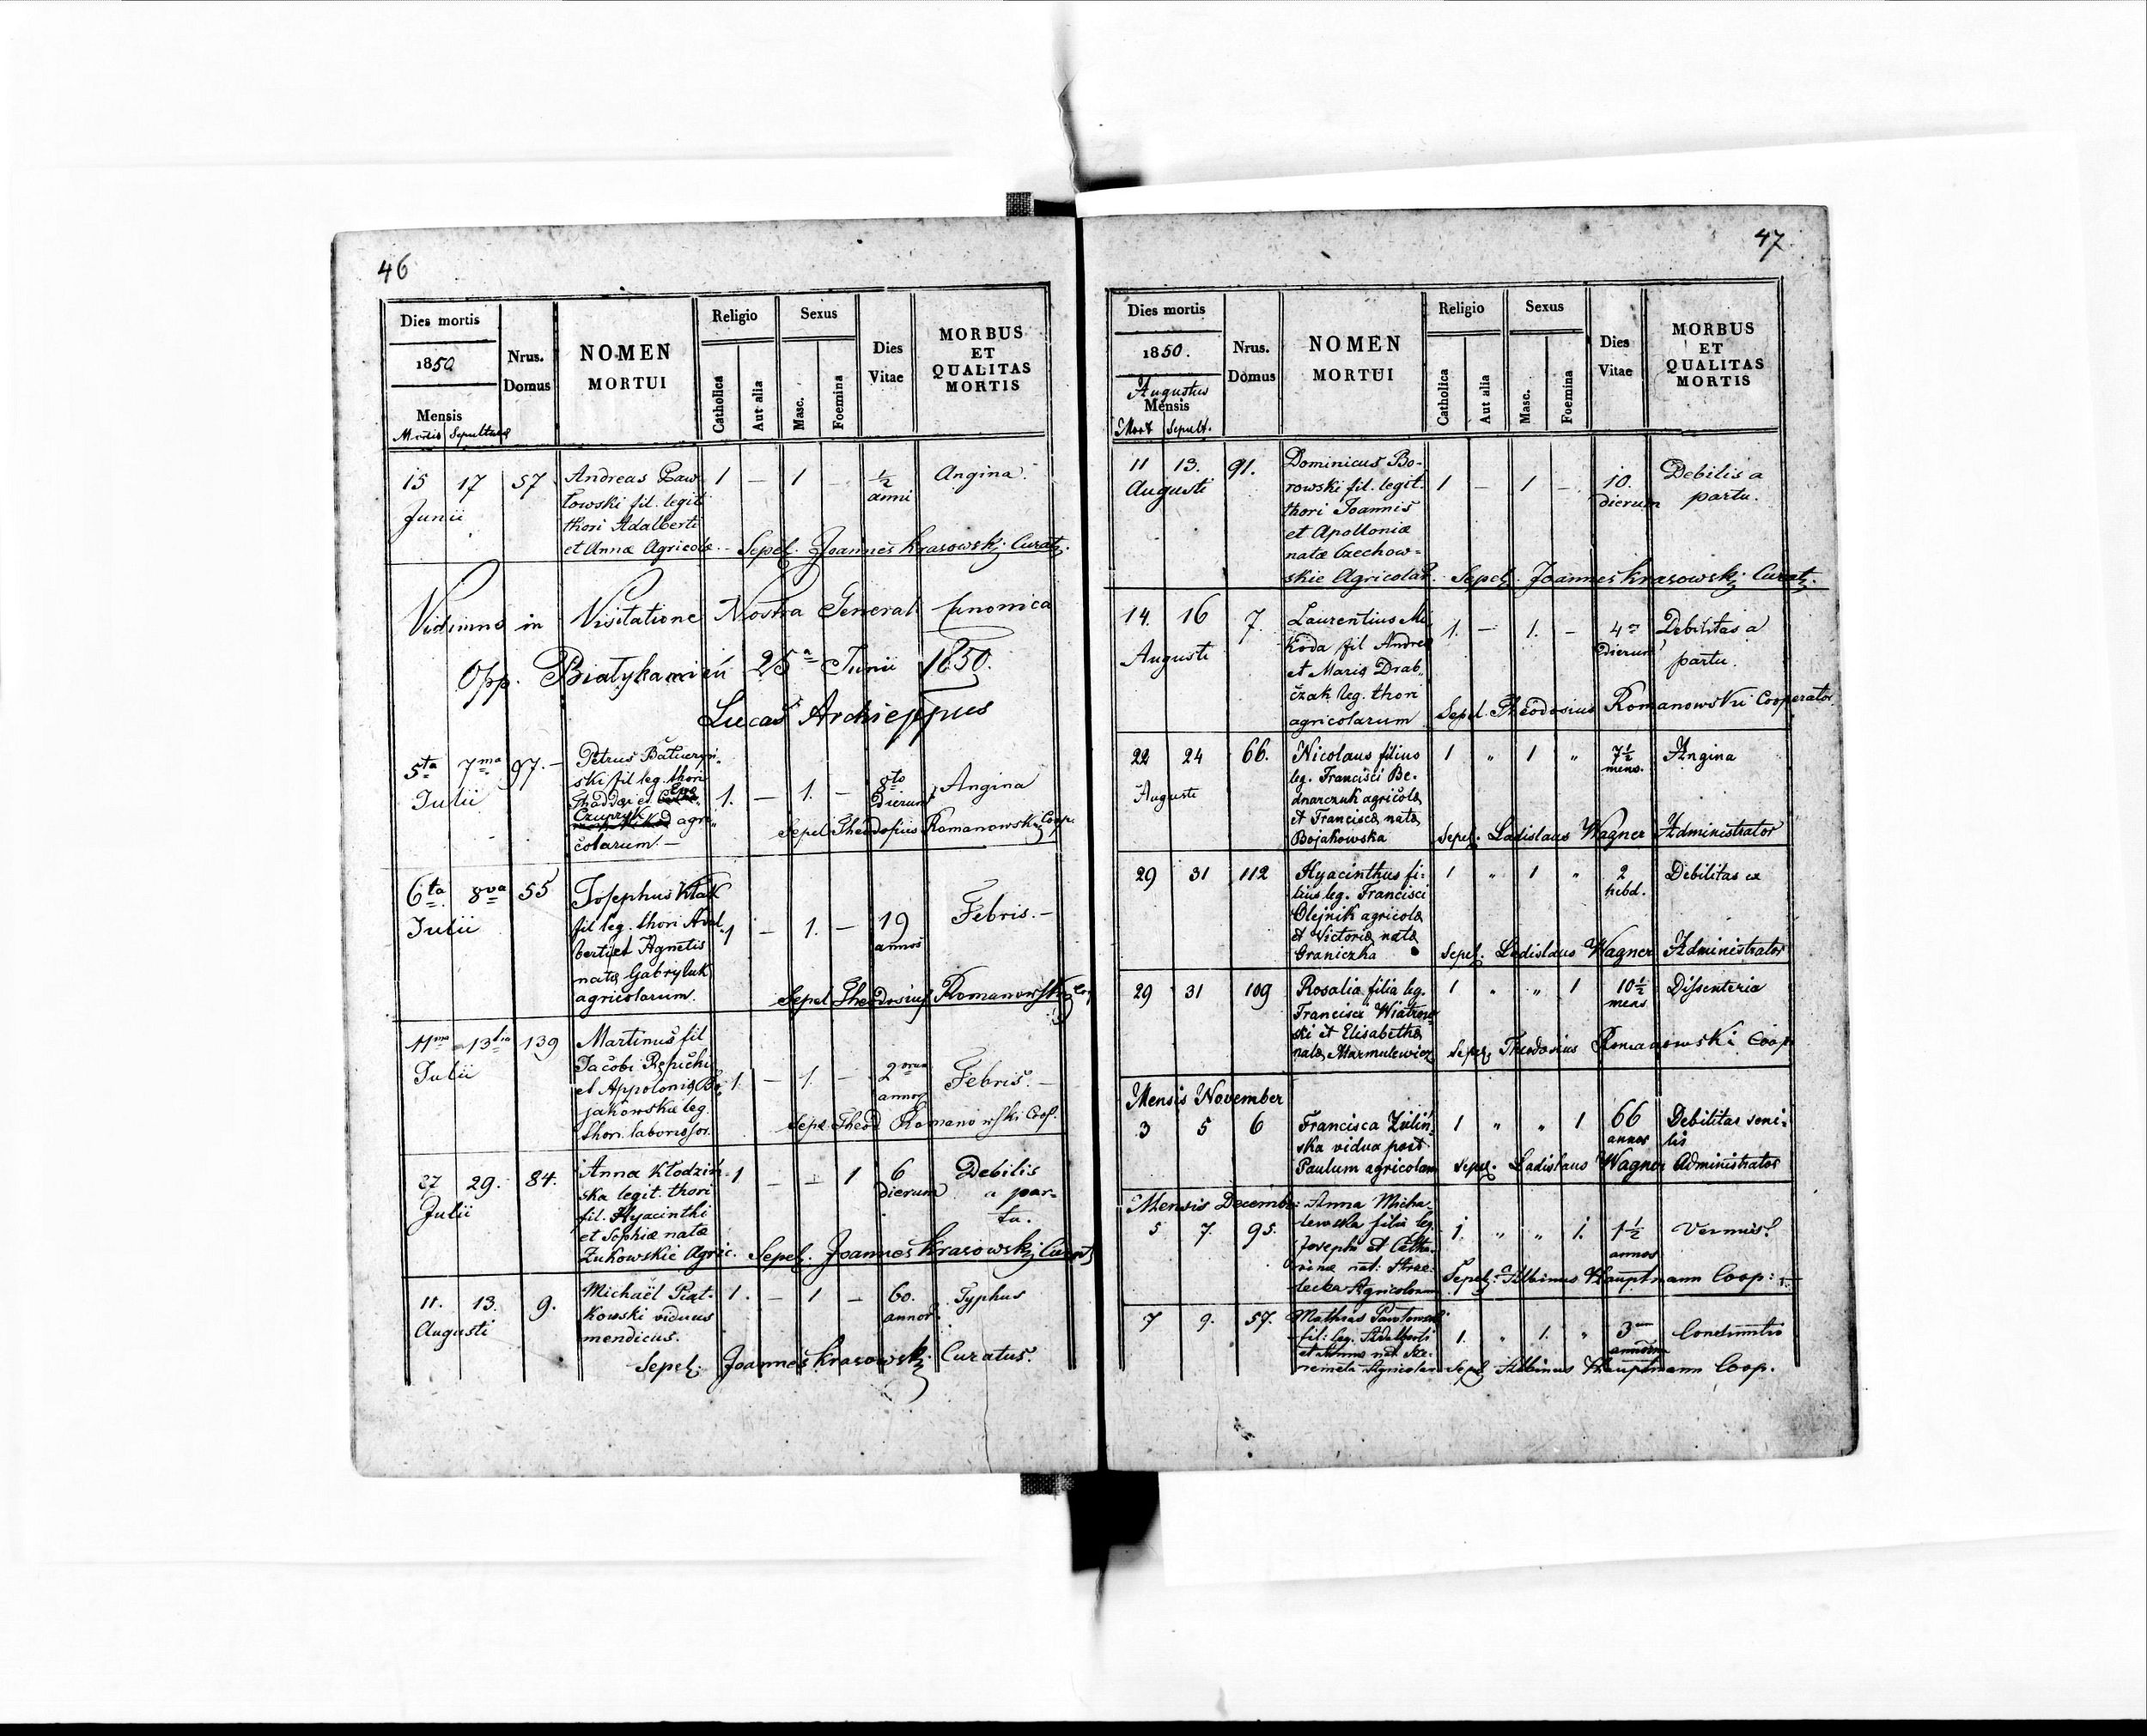 46
Dies mortis
1850
Mensis
Mortis Sepulturae
Nrus. Domus
NOMEN
MORTUI
Religio
Catholica
Aut alia
Sexus
Masc.
Foemina
Dies
Vitae
MORBUS
ET
QUALITAS
MORTIS
15 17 57 Andreas Paw- 1 — 1 — ½ Angina
Junii łowski fil. legit. anni
thori Adalberti
et Annæ Agricolæ. Sepel. Joannes Krasowski Curat.
Vidimus in Visitatione Nostra General Canonica
Opp. Białykamień 25a Junii 1850.
Lucas Archieppus
5ta 7ma 97. Petrus
ski fil leg. thori
Julii Thaddæi et Eva 1. — 1. — 8to Angina
Czupryk agri- dierum
colarum. Sepel Theodosius Romanowski Coop.
6ta 8va 55 Josephus Kłak
Julii fil leg. thori Adal- 1 — 1. — 19 Febris.—
berti et Agnetis annos
natæ Gabryluk
agricolarum. Sepel Theodosius Romanowski
11ma 13tia 139 Martinus fil
Julii Jacobi Repicki
et Appoloniæ Bo- 1. — 1. — 2orum Febris.—
jakowskie leg. annor
thori laborissor. Sepe Theod Romanowski Coop.
27 29. 84. Anna Kłodziń- 1 — — 1 6 Debilis
Julii ska legit. thori dierum a par-
fil. Hyacinthi tu.
et Sophiæ natæ
Żukowskie Agric. Sepel. Joannes Krasowski Curat
11. 13. 9. Michaël Piat- 1. — 1 — 60. Typhus
Augusti kowski viduus annor.
mendicus.
Sepel. Joannes Krasowski Curatus.
47
Dies mortis
1850.
Augustus
Mensis
Mort Sepult.
Nrus.
Domus
NOMEN
MORTUI
Religio
Catholica
Aut alia
Sexus
Masc.
Foemina
Dies
Vitae
MORBUS
ET
QUALITAS
MORTIS
11 13. 91. Dominicus Bo-
Augusti rowski fil. legit. 1 — 1 — 10. Debilis a
thori Joannis dierum partu.
et Apolloniæ
natæ Czechow-
skie Agricolar. Sepel. Joannes Krasowski Curat.
14. 16 7. Laurentius Mi
Augusti koda fil Andreæ 1. — 1. — 4or Debilitas a
et Maria Drab- dierum partu.
czak leg. thori
agricolarum Sepel. Theodosius Romanowski Cooperator
22 24 66. Nicolaus filius 1 " 1 " 7½ Angina
Augusti leg. Francisci Be- mens.
dnarczuk agricolæ
et Franciscæ natæ
Bojakowska Sepel. Ladislaus Wagner Administrator
29 31 112 Hyacinthus fi- 1 " 1 " 2 Debilitas
lius leg. Francisci hebd.
Olejnik agricolæ
et Victoriæ natæ
Graniczka Sepel. Ladislaus Wagner Administrator
29 31 109 Rosalia filia leg. 1 " " 1 10½ Dissenteria
Francisci Wiatrow- mens
ski et Elisabethæ
natæ Marmulewicz Sepel. Theodosius Romanowski Coop
Mensis November
3 5 6 Francisca Żuliń- 1 " " 1 66 Debilitas seni-
ska vidua post annor lis
Paulum agricolam Sepel. Ladislaus Wagner Administrator
Mensis Decembr: Anna Micha-
5 7. 95. lewska filia leg. 1. " " 1. 1½ Vermes.
Josephi et Catha- annos
rinæ nat: Strze-
lecka Agricolarum Sepel: Albinus Hauptmann Coop:
7 9. 57. Mathias Pawłowski
fil: leg. Adalberti 1. " 1. " 3um
et Annæ nat annorum
Agricolar Sepel Albinus Hauptmann Coop.